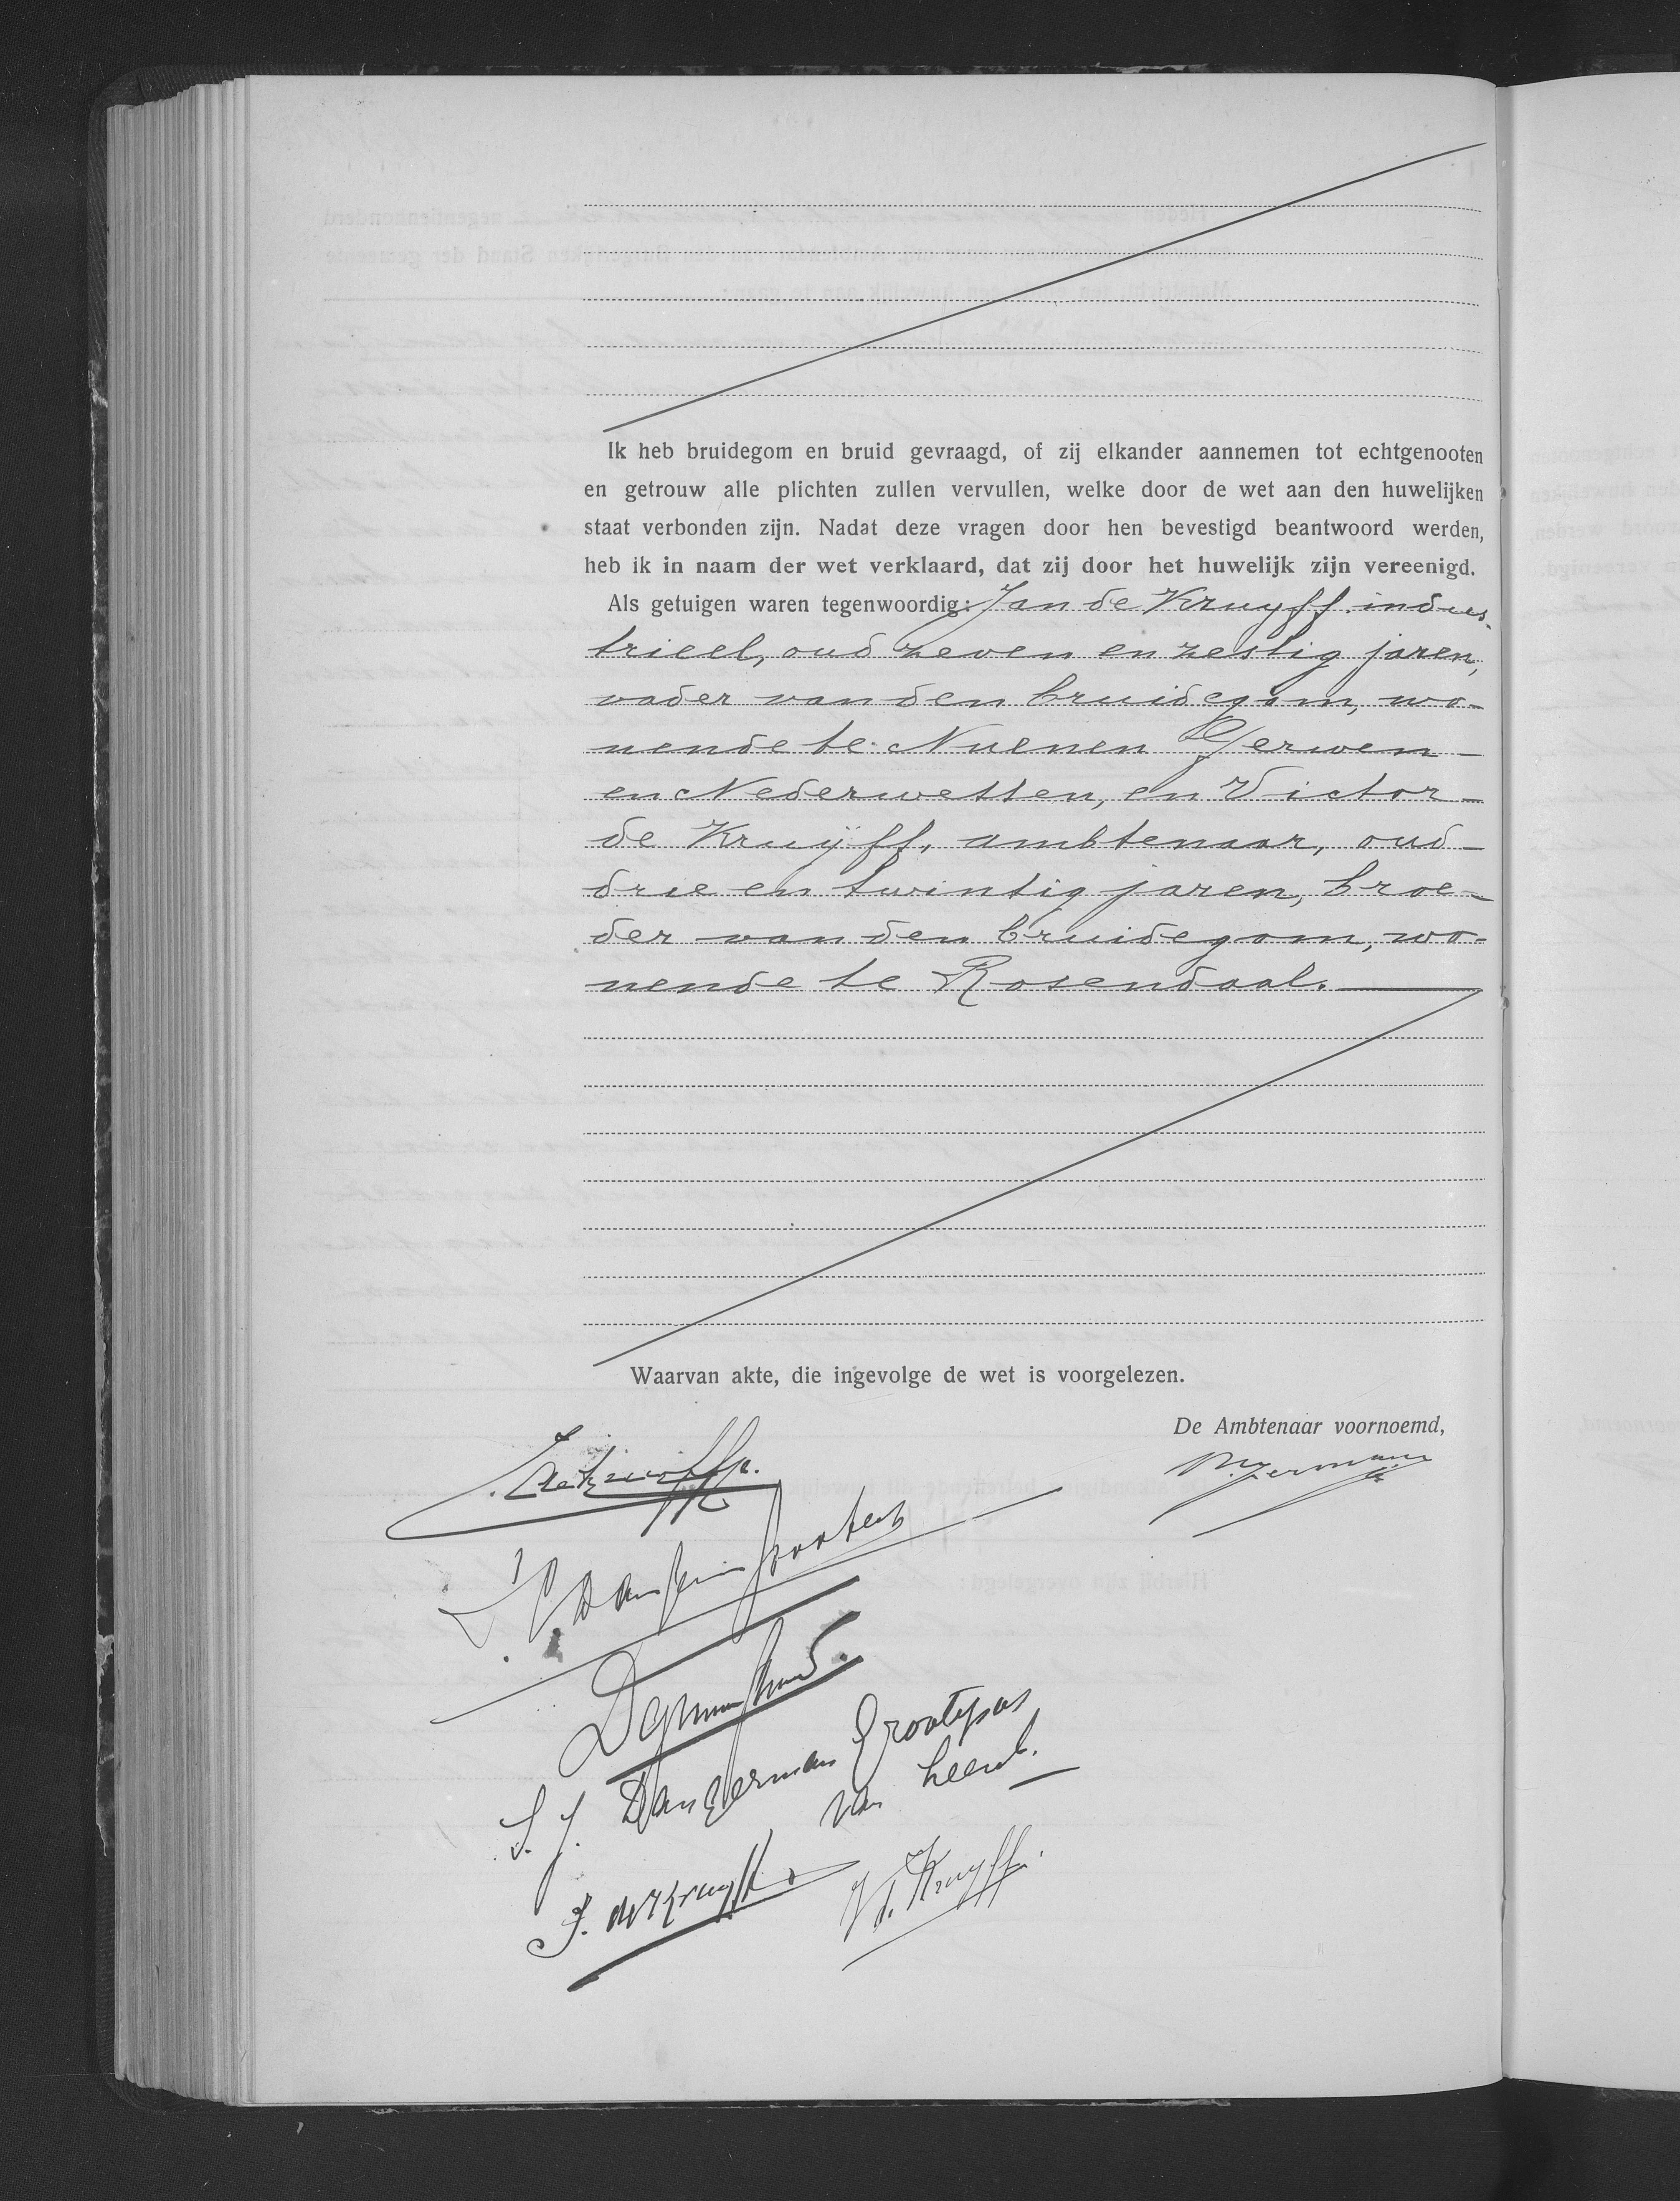 Ik heb bruidegom en bruid gevraagd, of zij elkander aannemen tot echtgenooten
en getrouw alle plichten zullen vervullen, welke door de wet aan den huwelijken
staat verbonden zijn. Nadat deze vragen door hen bevestigd beantwoord werden,
heb ik in naam der wet verklaard, dat zij door het huwelijk zijn vereenigd.
Als getuigen waren tegenwoordig: Jan de Kruyff. indus-
trieel, oud zeven en zestig jaren,
vader van den bruidegom, wo-
nende te Nuenen Gerwen
en Nederwetten, en Victor
de Kruÿff, ambtenaar, oud
drie en twintig jaren, broe-
der van den bruidegom, wo-
nende te Rosendaal.
Waarvan akte, die ingevolge de wet is voorgelezen.
De Ambtenaar voornoemd,
S. J. Dangerman Grootepas
van Leent.
J. de Kruyff
V d. Kruyff.